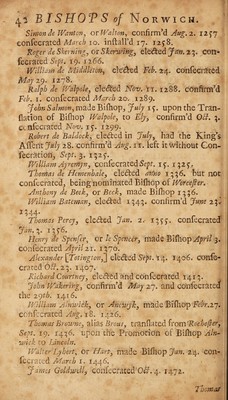 42 BISHOPS of NORWICH.
Simon de Wanton, or Walton, confirm'd Aug. 2. 1257
consecrated March 10. install'd 17. 1258.
Roger de Skerning, or Skerwing, elected Jan. 23. con-
secrated Sept. 19. 1266.
William de Middleton, elected Feb. 24. consecrated
May 29. 1278.
Ralph de Walpole, elected Nov. 11. 1288. confirm'd
Feb. 1. consecrated March 20. 1289.
John Salmon, made Bishop, July 15. upon the Tran-
slation of Bishop Walpole, to Ely, confirm'd Oct. 3.
consecrated Nov. 15. 1299.
Robert de Baldock, elected in July, had the King's
Assent July 28. confirm'd Aug. 11. left it without Con-
secration, Sept. 3. 1325.
William Ayremyn, consecrated Sept. 15. 1325.
Thomas de Hemenhale, elected anno 1336. but not
consecrated, being nominated Bishop of Worcester.
Anthony de Beck, or Beek, made Bishop 1336.
William Bateman, elected 1343. confirm'd June 23.
1344.
Thomas Percy, elected Jan. 2. 1355. consecrated
Jan. 3. 1356.
Henry de Spenser, or le Spencer, made Bishop April 3.
consecrated April 21. 1370.
Alexander [Totington,] elected Sept. 14. 1406. conse-
crated Oct. 23. 1407.
Richard Courtney, elected and consecrated 1413.
John Wakering, confirm'd May 27. and consecrated
the 29th. 1416.
William Alnwick, or Anewyk, made Bishop Febr. 27.
consecrated Aug. 18. 1426.
Thomas Browne, alias Brous, translated from Rochester,
Sept. 19. 1436. upon the Promotion of Bishop Aln-
wick to Lincoln.
Walter Lyhert, or Hart, made Bishop Jan. 24. con-
secrated March 1. 1446.
James Goldwell, consecrated Oct. 4. 1472.
Thomas